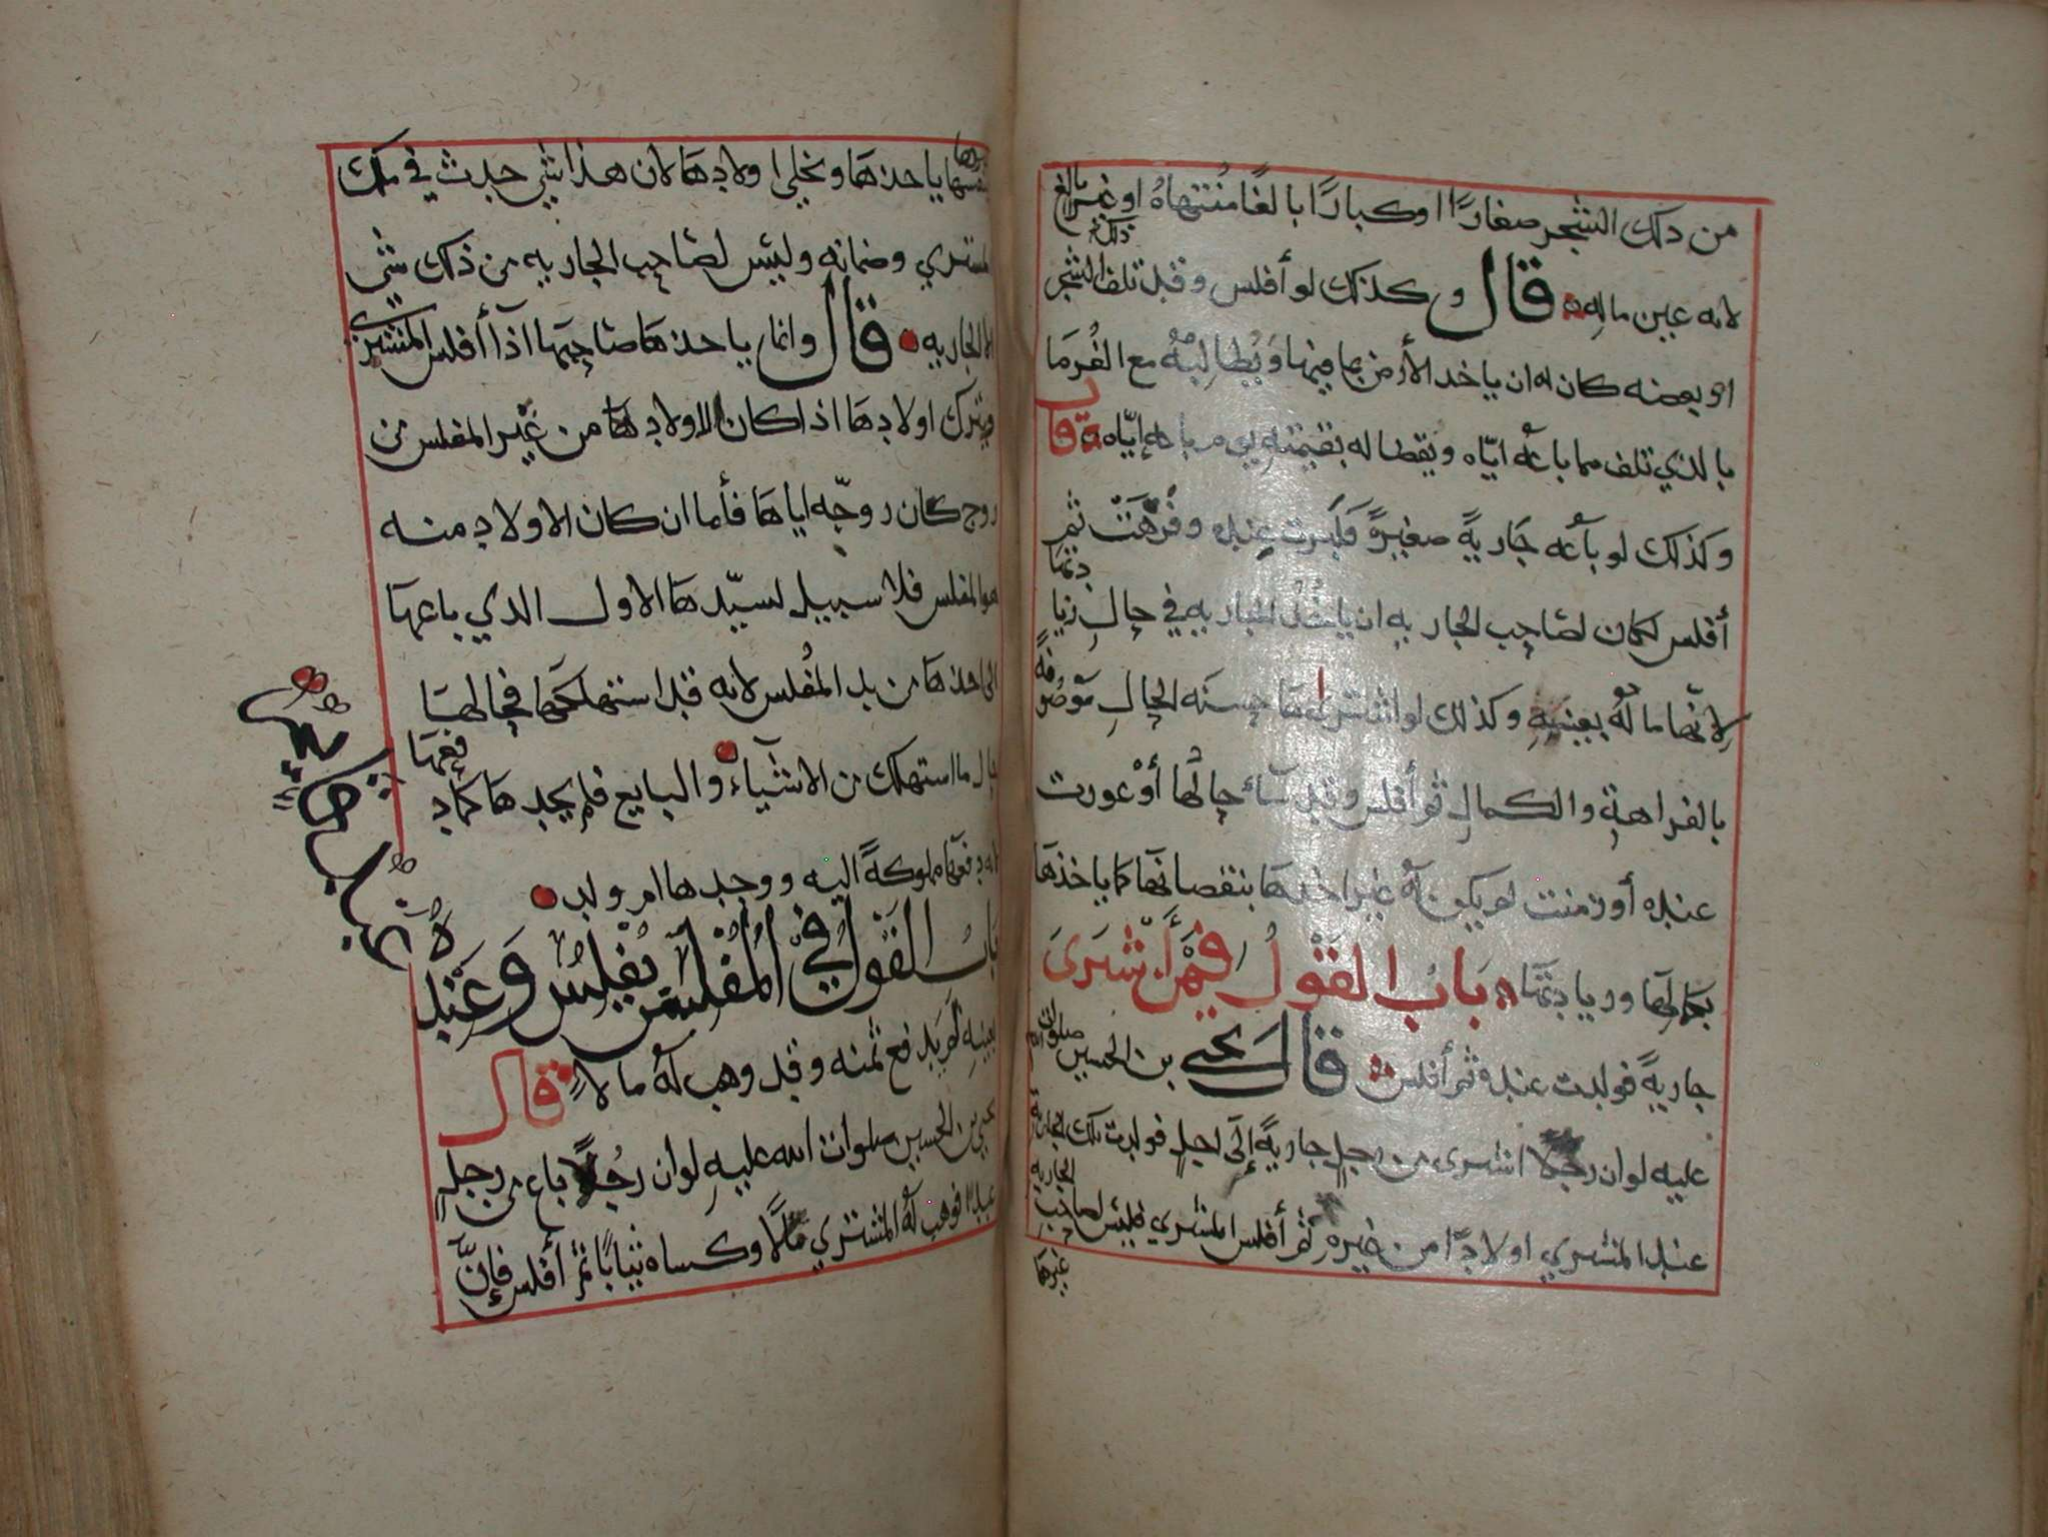 من ذلك الشجر صغارًا او كبارًا بالغًا مُنتهاهُ او غير بالغ
ذلك
لانه عين ماله قال وكذلك لو أفلس وقد تلف الشجر
او بعضه كان له ان ياخد الأرض بما فيها وَيُطالِبهُ مع الغُرمَا
بالذي تلف مما باعَه ايّاه ويقضا له بقيمته يوم باعه إيّاه قال
وكذلك لو باعَه جَاريةً صغيرةً فكبرت عنده وفَرُهَتْ ثم
أفلس لكان لصَاحِب الجاريهِ ان ياخُذ الجاريه في حالِ زيا
دتها
لانّها مالُهُ بعينهِ وكذلك لو اشتراها حسنَه الحالِ مَوْصُو
فةً
بالفراهةِ والكمالِ ثم أفلس وقد سَآءَ حالُها أوْ عورت
عنده أو زمنت لم يكن لهُ غير اخذهَا بنقصانها كما ياخذهَا
بكمالها وزيادتها بَابُ القَوْلُ فيمَنْ اشترَى
جاريةً فولدت عنده ثم أفلس قال يحيى بن الحسين صلوات الله
عليه لو ان رجلا اشترى من رجلٍ جاريةً إلَى اجلٍ فولدت تلك الجارية
عند المشتري اولادًا من غيرهِ ثم أفلس المشتري فليس لصاحب
الجاريه
غيرها
غيرها
نفسها ياخذهَا ويخلي اولادهَا لان هذا شي حدث في ملك
المشتري وضمانه وليس لصَاحِب الجاريه من ذلك شي
الا الجاريه قال وانما ياخذهَا صَاحِبهَا اذآ أفلس المشتري
ويترك اولادهَا اذا كان الاولادهَا من غَيْر المفلس من
زوج كان زوّجه اياهَا فأما ان كان الاولاد منه
هو المفلس فلا سبيل لسيّدهَا الاول الذي باعهَا
الى اخذهَا من يد المُفلس لانه قد استهلكها فحالهَا
حال ما استهلك من الاشيآء والبايع فلم يجدهَا كما د
فعهَا
لانه دفعهَا مملوكةً اليه ووجدها ام ولد
بَابُ القَوْلُ فِي المُفْلِسِ يُفْلِسُ وَعَنْد
هُ عَبْد
بعينهِ لم يَدفع ثمنه وقد وهب لَهُ مالاً قال
يحيى بن الحسين صلوات الله عليهِ لو ان رجُلًا باع من رجلٍ
عبدًا فوهب لَهُ المشتري مَالًا وكساه ثيابًا ثم أفلس فإنّ